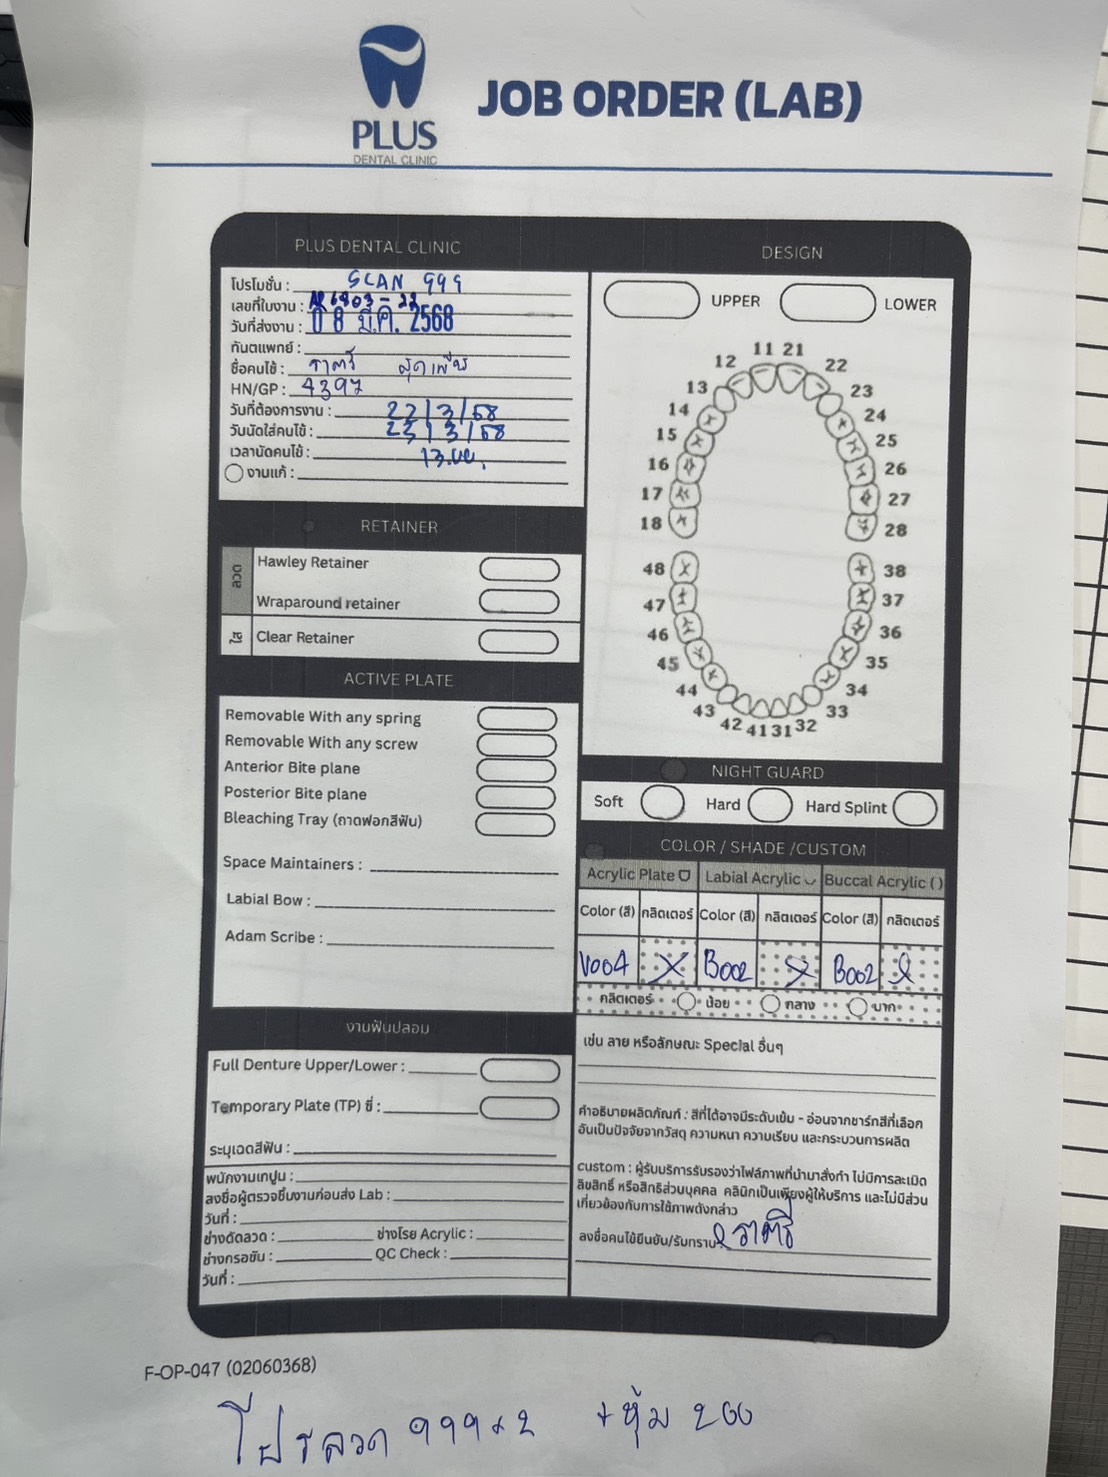 PLUS
DENTAL CLINIC
JOB ORDER (LAB)
PLUS DENTAL CLINIC
โปรโมชั่น : SCAN 999
เลขที่ใบงาน : 6803-22
วันที่ส่งงาน : 08 มี.ค. 2568
ทันตแพทย์ :
ชื่อคนไข้ : ราตรี
HN/GP : 4397
วันที่ต้องการงาน : 22/3/68
วันนัดใส่คนไข้ : 23/3/68
เวลานัดคนไข้ : 13.00
งานแก้ :
RETAINER
ลวด
Hawley Retainer
Wraparound retainer
ใส
Clear Retainer
ACTIVE PLATE
Removable With any spring
Removable With any screw
Anterior Bite plane
Posterior Bite plane
Bleaching Tray (ถาดฟอกสีฟัน)
Space Maintainers :
Labial Bow :
Adam Scribe :
งานฟันปลอม
Full Denture Upper/Lower :
Temporary Plate (TP) ซี่ :
ระบุเฉดสีฟัน :
พนักงานเทปูน :
ลงชื่อผู้ตรวจชิ้นงานก่อนส่ง Lab :
วันที่ :
ช่างดัดลวด : ช่างโรย Acrylic :
ช่างกรอขัน : QC Check :
วันที่ :
DESIGN
UPPER LOWER
11 21
12 22
13 23
14 24
15 25
16 26
17 27
18 28
48 38
47 37
46 36
45 35
44 34
43 33
42 41 31 32
NIGHT GUARD
Soft Hard Hard Splint
COLOR / SHADE /CUSTOM
Acrylic Plate Labial Acrylic Buccal Acrylic ( )
Color (สี) กลิตเตอร์ Color (สี) กลิตเตอร์ Color (สี) กลิตเตอร์
V004 X B002 X B002
กลิตเตอร์ น้อย กลาง มาก
เช่น ลาย หรือลักษณะ Special อื่นๆ
คำอธิบายผลิตภัณฑ์ : สีที่ได้อาจมีระดับเข้ม - อ่อนจากชาร์ทสีที่เลือก
อันเป็นปัจจัยจากวัสดุ ความหนา ความเรียบ และกระบวนการผลิต
custom : ผู้รับบริการรับรองว่าไฟล์ภาพที่นำมาสั่งทำ ไม่มีการละเมิด
ลิขสิทธิ์ หรือสิทธิส่วนบุคคล คลินิกเป็นเพียงผู้ให้บริการ และไม่มีส่วน
เกี่ยวข้องกับการใช้ภาพดังกล่าว
ลงชื่อคนไข้ยืนยัน/รับทราบ ราตรี
F-OP-047 (02060368)
โปรลวด 999x2 +หุ้ม 200